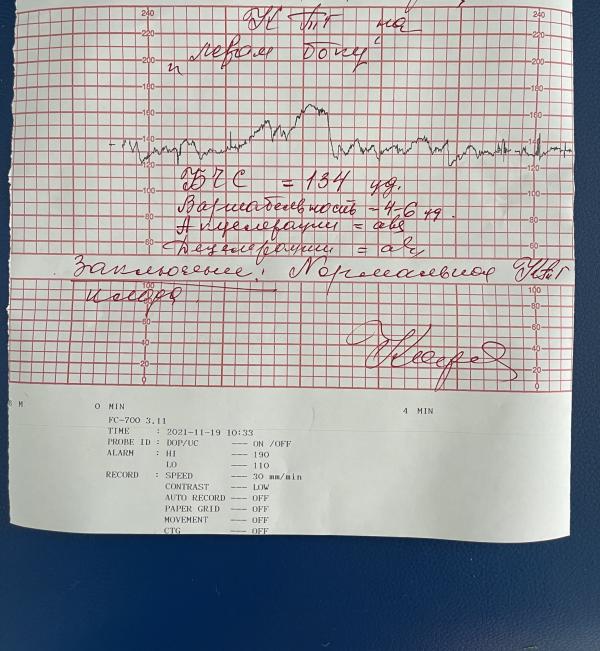 КТГ на
"левом боку"
240 240
220
200
180 180
160 160
140 140
120
100
80 80
60 60
БЧС = 134 уд.
Вариабельность = 4-6 уд.
Акцелерации = abs
Децелерации = abs
Заключение: Нормальное КТГ
плода.
100 100
80 80
60 60
40 40
20 20
0 0
0 MIN 4 MIN
FC-700 3.11
TIME : 2021-11-19 10:33
PROBE ID : DOP/UC --- ON /OFF
ALARM : HI --- 190
LO --- 110
RECORD : SPEED --- 30 mm/min
CONTRAST --- LOW
AUTO RECORD --- OFF
PAPER GRID --- OFF
MOVEMENT --- OFF
CTG --- OFF